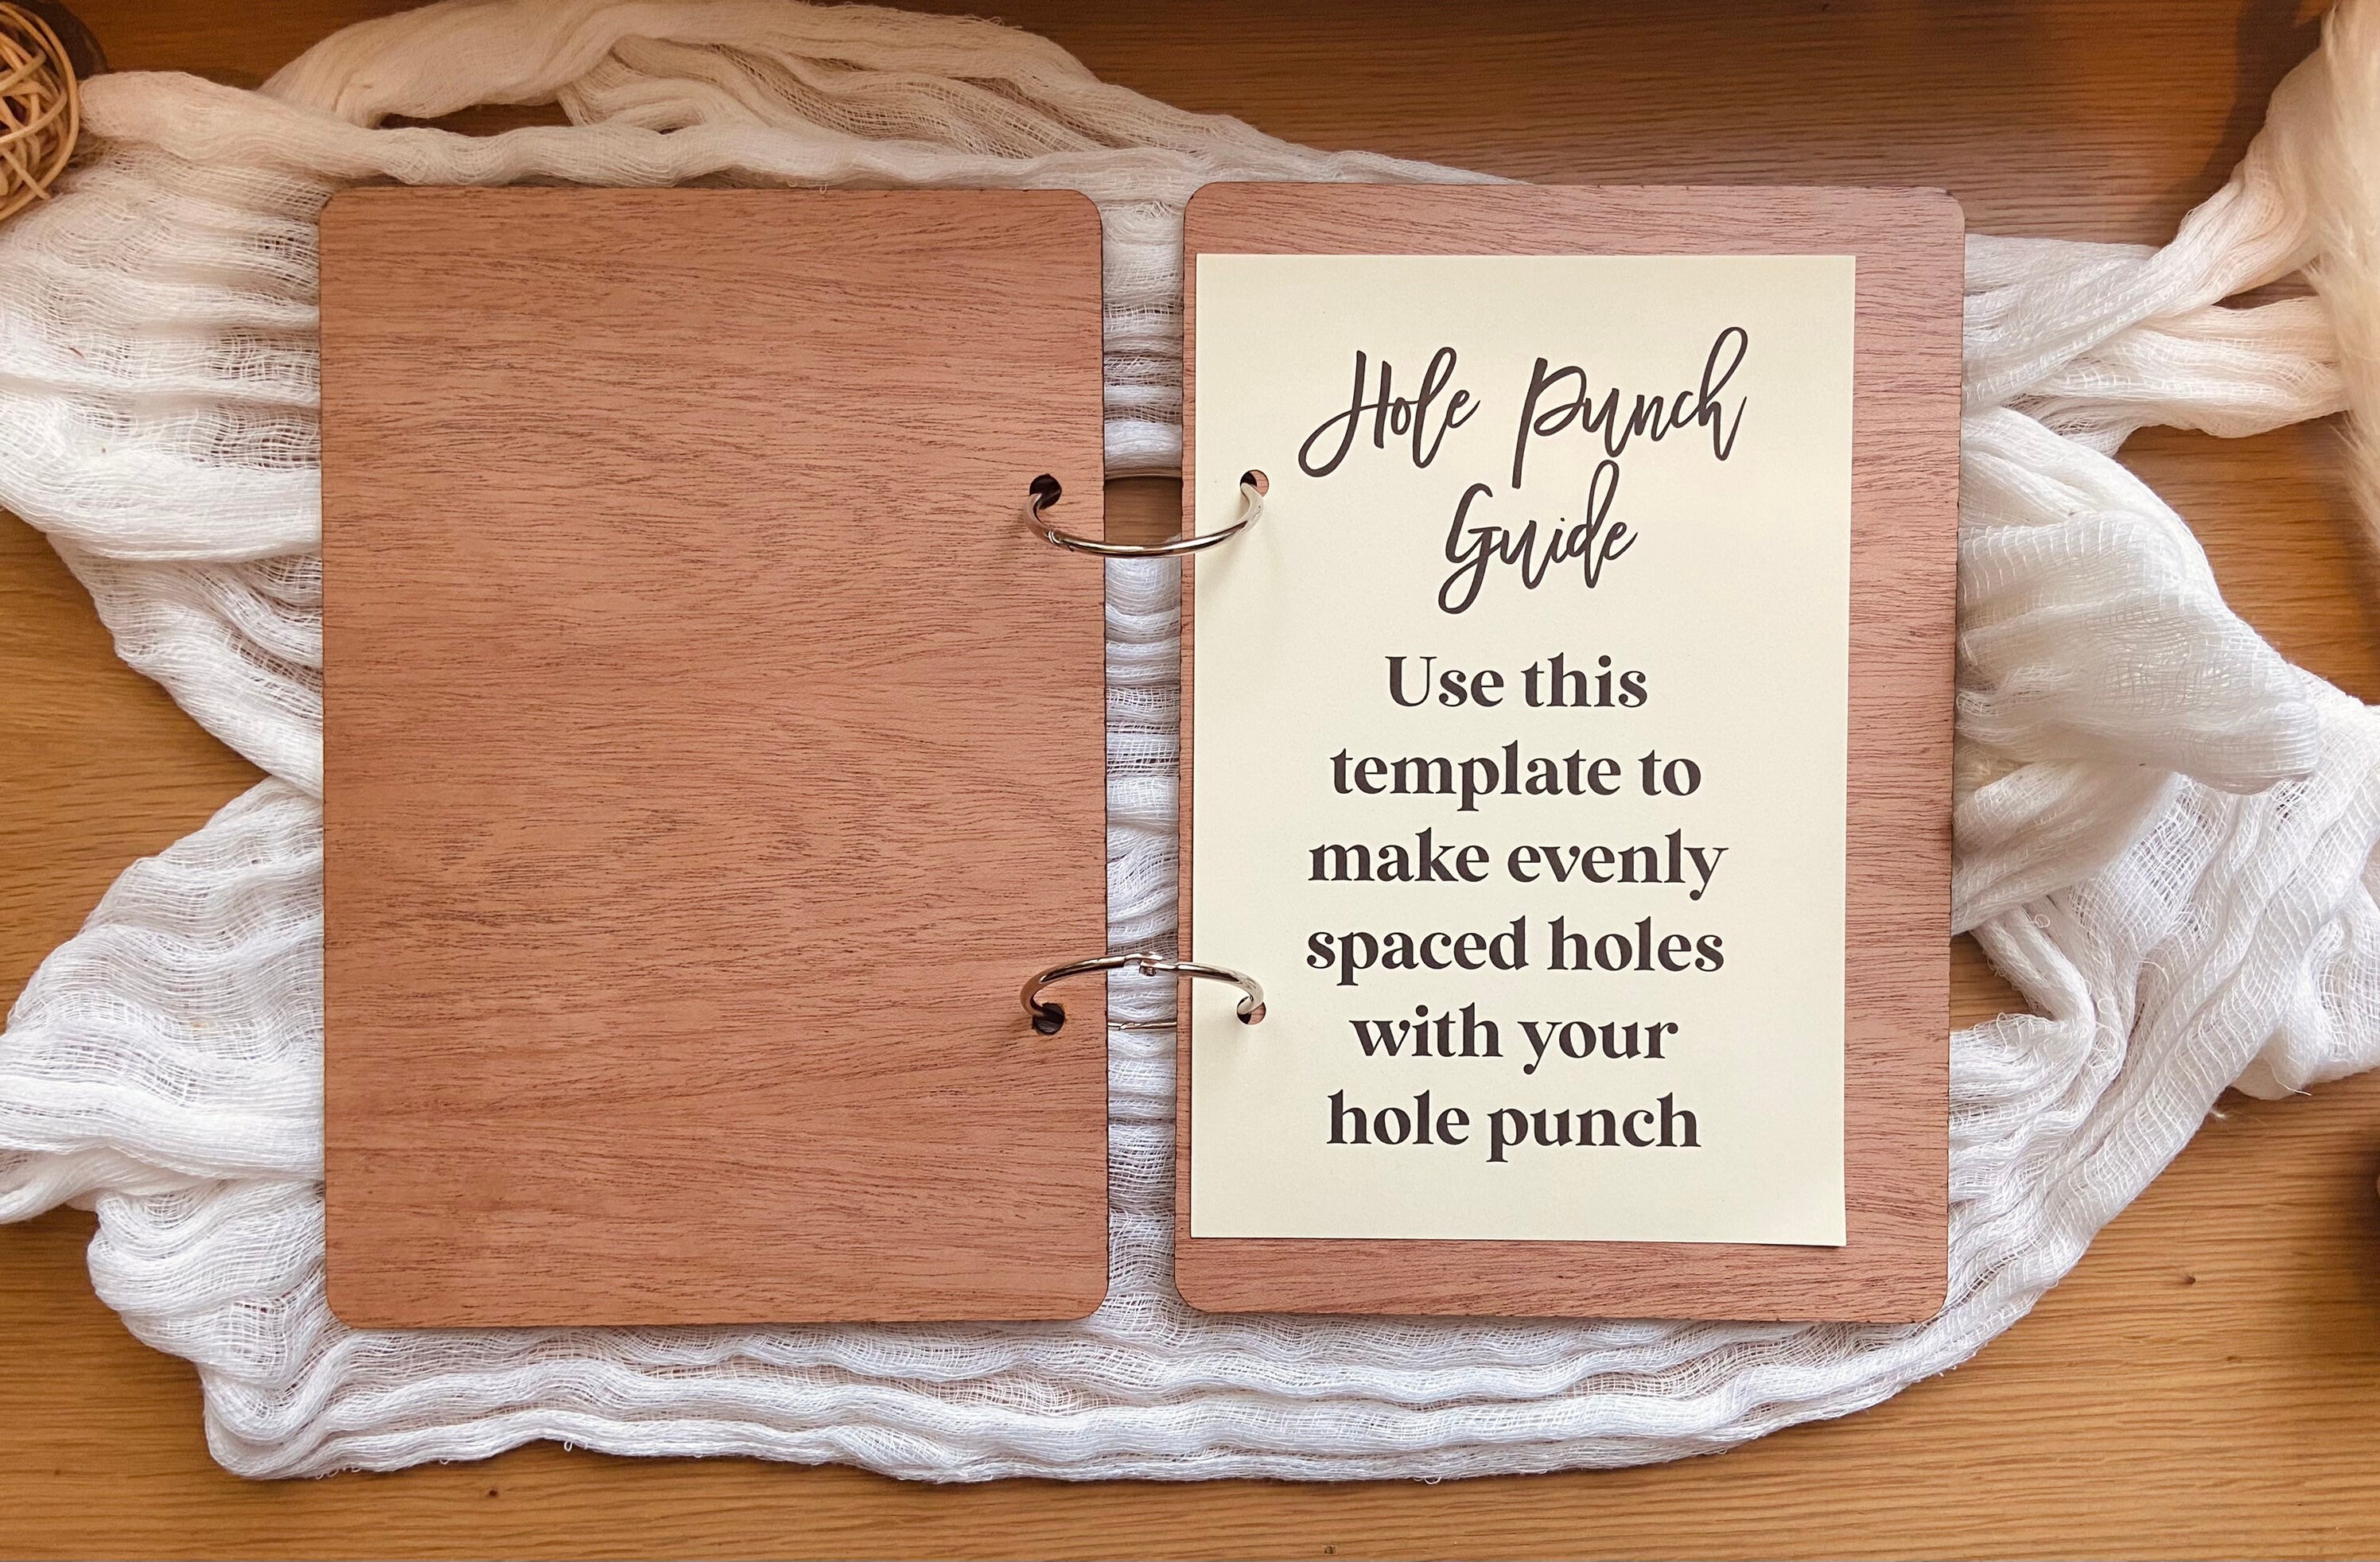 Hole Punch
Guide
Use this
template to
make evenly
spaced holes
with your
hole punch